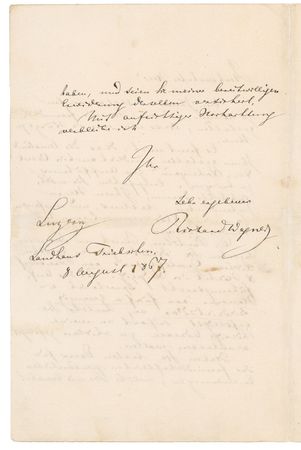 haben, und seien Sie meiner bereitwilligen
Erwiderung derselben versichert.
Mit aufrichtiger Hochachtung
verbleibe ich
Ihr
sehr ergebener
Luzern
Richard Wagner
Landhaus Triebschen.
8 August 1867.